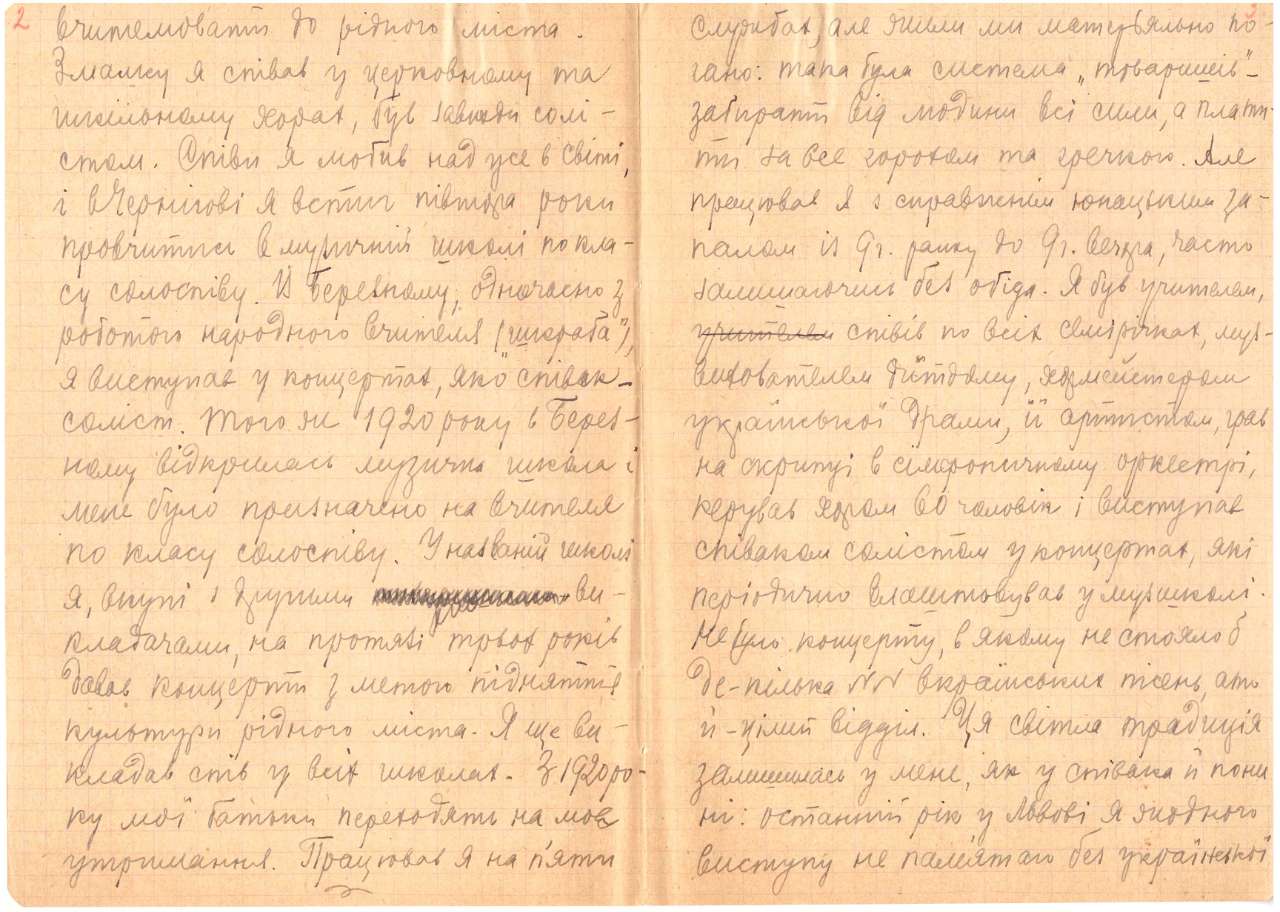 2
вчителювати до рідного міста.
Змалку я співав у церковному та
шкільному хорах, був завжди солі-
стом. Співи я любив над усе в світі,
і в Чернігові я встиг півтора роки
провчитись в музичній школі по кла-
су солоспіву. В Березному, одночасно з
роботою народного вчителя („шкраба"),
я виступав у концертах, яко співак-
соліст. Того ж 1920 року в Берез-
ному відкрилась музична школа і
мене було призначено на вчителя
по класу солоспіву. У названій школі
я, вкупі з другими ви-
кладачами, на протязі трьох років
давав концерти з метою підняття
культури рідного міста. Я ще ви-
кладав спів у всіх школах. З 1920 ро-
ку мої батьки переходять на моє
утримання. Працював я на п'яти
службах, але жили ми матеріяльно по-
гано: така була система „товаришів"-
забирати від людини всі сили, а плати-
ти за все горохом та гречкою. Але
працював я з справжнім юнацьким за-
палом із 9 г. ранку до 9 г. вечора, часто
залишаючись без обіда. Я був учителем,
учителем співів по всіх семирічках, муз-
вихователем дитдому, хормейстером
української драми, її артистом, грав
на скрипці в сімфонічному оркестрі,
керував хором 60 чоловік і виступав
співаком солістом у концертах, які
періодично влаштовував у музшколі.
Не було концерту, в якому не стояло б
де-кілька №№ вкраїнських пісень, або
й-цілий відділ. Ця світла традиція
залишилась у мене, як у співака й пони
ні: останній рік у Львові я жодного
виступу не пам'ятаю без української